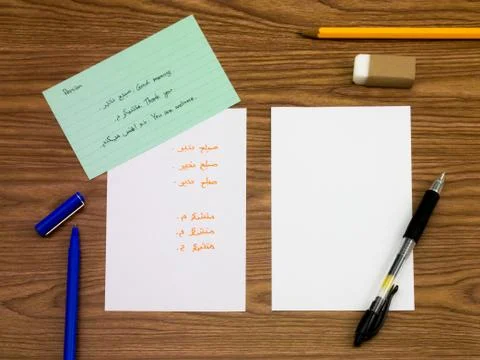 Persian
صبح بخیر. Good morning
متشکر م. Thank you
خواهش میکنم. You are welcome.
صبح بخیر.
صبح بخیر.
صبح بخیر.
متشکر م.
متشکر م.
متشکر م.